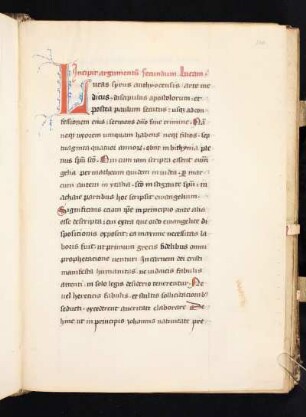 Incipit argumentu secundum Lucam
Lucas syrus anthiocensis arte me
dicus discipulus apostolorum et
postea paulum secutus usq ad con
fessionem eius seruiens dno sine crimine Na
neq uxorem umquam habens neq filios sep
tuaginta quatuor annorum obijt in bithynia ple
nus spu sco Qui cum iam scripta essent euan
gelia per matheum quidem in iudea per mar
cum autem in ytalia sco instigante spu in
achaie partibus hoc scripsit euangelium
Significans etiam ipse in principio ante alia
esse descripta Cui extra ea que ordo euangelice dis
posicionis exposcit ea maxime necessitas la
boris fuit ut primum grecis fidelibus omni
prophetacione uenturi in carnem dei cristi
manifesta humanitas ne iudaicis fabulis
attenti in solo legis desiderio tenerentur Ne
uel hereticis fabulis et stultis sollicitacionibus
seducti excederent a ueritate elaboraret De
hinc ut in principio iohannis natiuitate pre